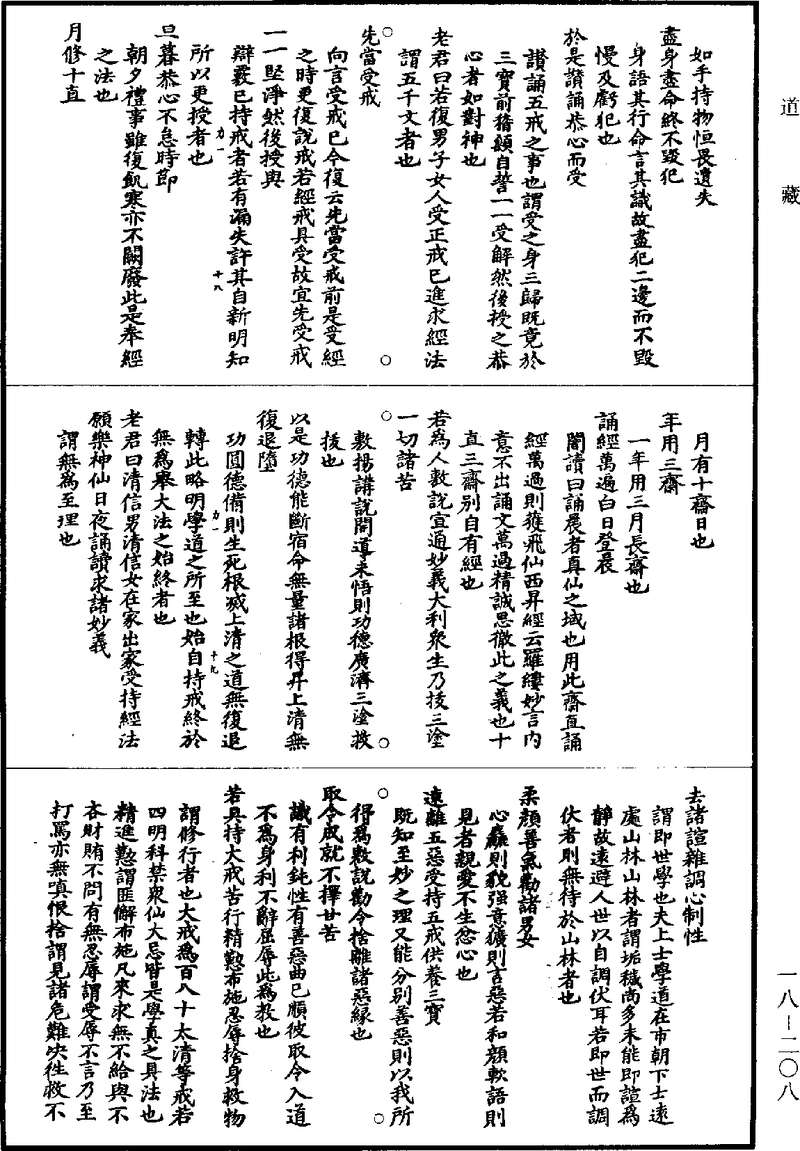 如手持物恒畏遺失
盡身盡命終不毀犯
身語其行命言其識故盡犯二邊而不毀
慢及虧犯也
於是讚誦恭心而受
讚誦五戒之事也謂受之身三歸既竟於
三寶前稽顙自誓一一受解然後授之恭
心者如對神也
老君曰若復男子女人受正戒已進求經法
謂五千文者也
先當受戒
向言受戒已今復云先當受戒前是受經
之時更復說戒若經戒具受故宜先受戒
一一堅淨然後授與
辯覈已持戒者若有漏失許其自新明知
所以更授者也
力一
十八
旦暮恭心不怠時節
朝夕禮事雖復飢寒亦不闕廢此是奉經
之法也
月修十直
月有十齋日也
年用三齋
一年用三月長齋也
誦經萬遍白日登晨
闇讀曰誦晨者真仙之域也用此齋直誦
經萬過則獲飛仙西昇經云羅縷妙言內
意不出誦文萬過精誠思徹此之義也十
直三齋別自有經也
若為人敷說宣通妙義大利衆生乃拔三塗
一切諸苦
敷揚講說開導未悟則功德廣濟三塗救
拔也
以是功德能斷宿命無量諸根得昇上清無
復退墮
功圓德備則生死根滅上清之道無復退
轉此略明學道之所至也始自持戒終於
無為舉大法之始終者也
力一
十九
老君曰清信男清信女在家出家受持經法
願樂神仙日夜誦讀求諸妙義
謂無為至理也
去諸諠雜調心制性
謂即世學也夫上士學道在市朝下士遠
處山林山林者謂垢穢尚多未能即諠為
靜故遠避人世以自調伏耳若即世而調
伏者則無待於山林者也
柔顏善氣勸諸男女
心麤則貌强意獷則言惡若和顏軟語則
見者親愛不生忿心也
遠離五惡受持五戒供養三寶
既知至妙之理又能分別善惡則以我所
得為敷說勸令捨離諸惡緣也
取令成就不擇甘苦
識有利鈍性有善惡曲已順彼取令入道
不為身利不辭屈辱此為教也
若具持大戒苦行精懃布施忍辱捨身救物
謂修行者也大戒為百八十太清等戒若
四明科禁衆仙大忌皆是學真之具法也
精進懃謂匪懈布施凡來求無不給與不
吝財賄不問有無忍辱謂受辱不言乃至
打罵亦無嗔恨捨謂見諸危難必往救不
道藏
一八－二〇八